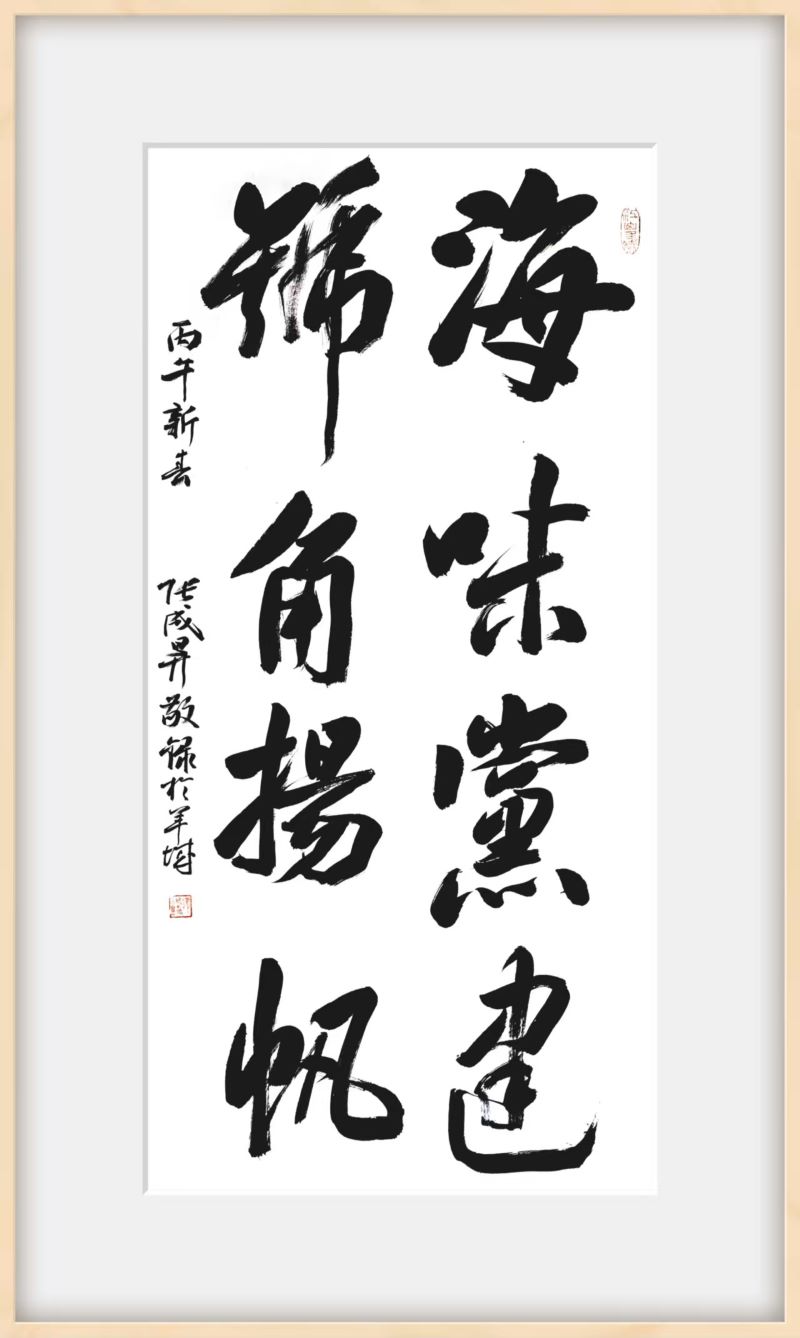 海味黨建
號角揚帆
丙午新春 張成昇敬録於羊城